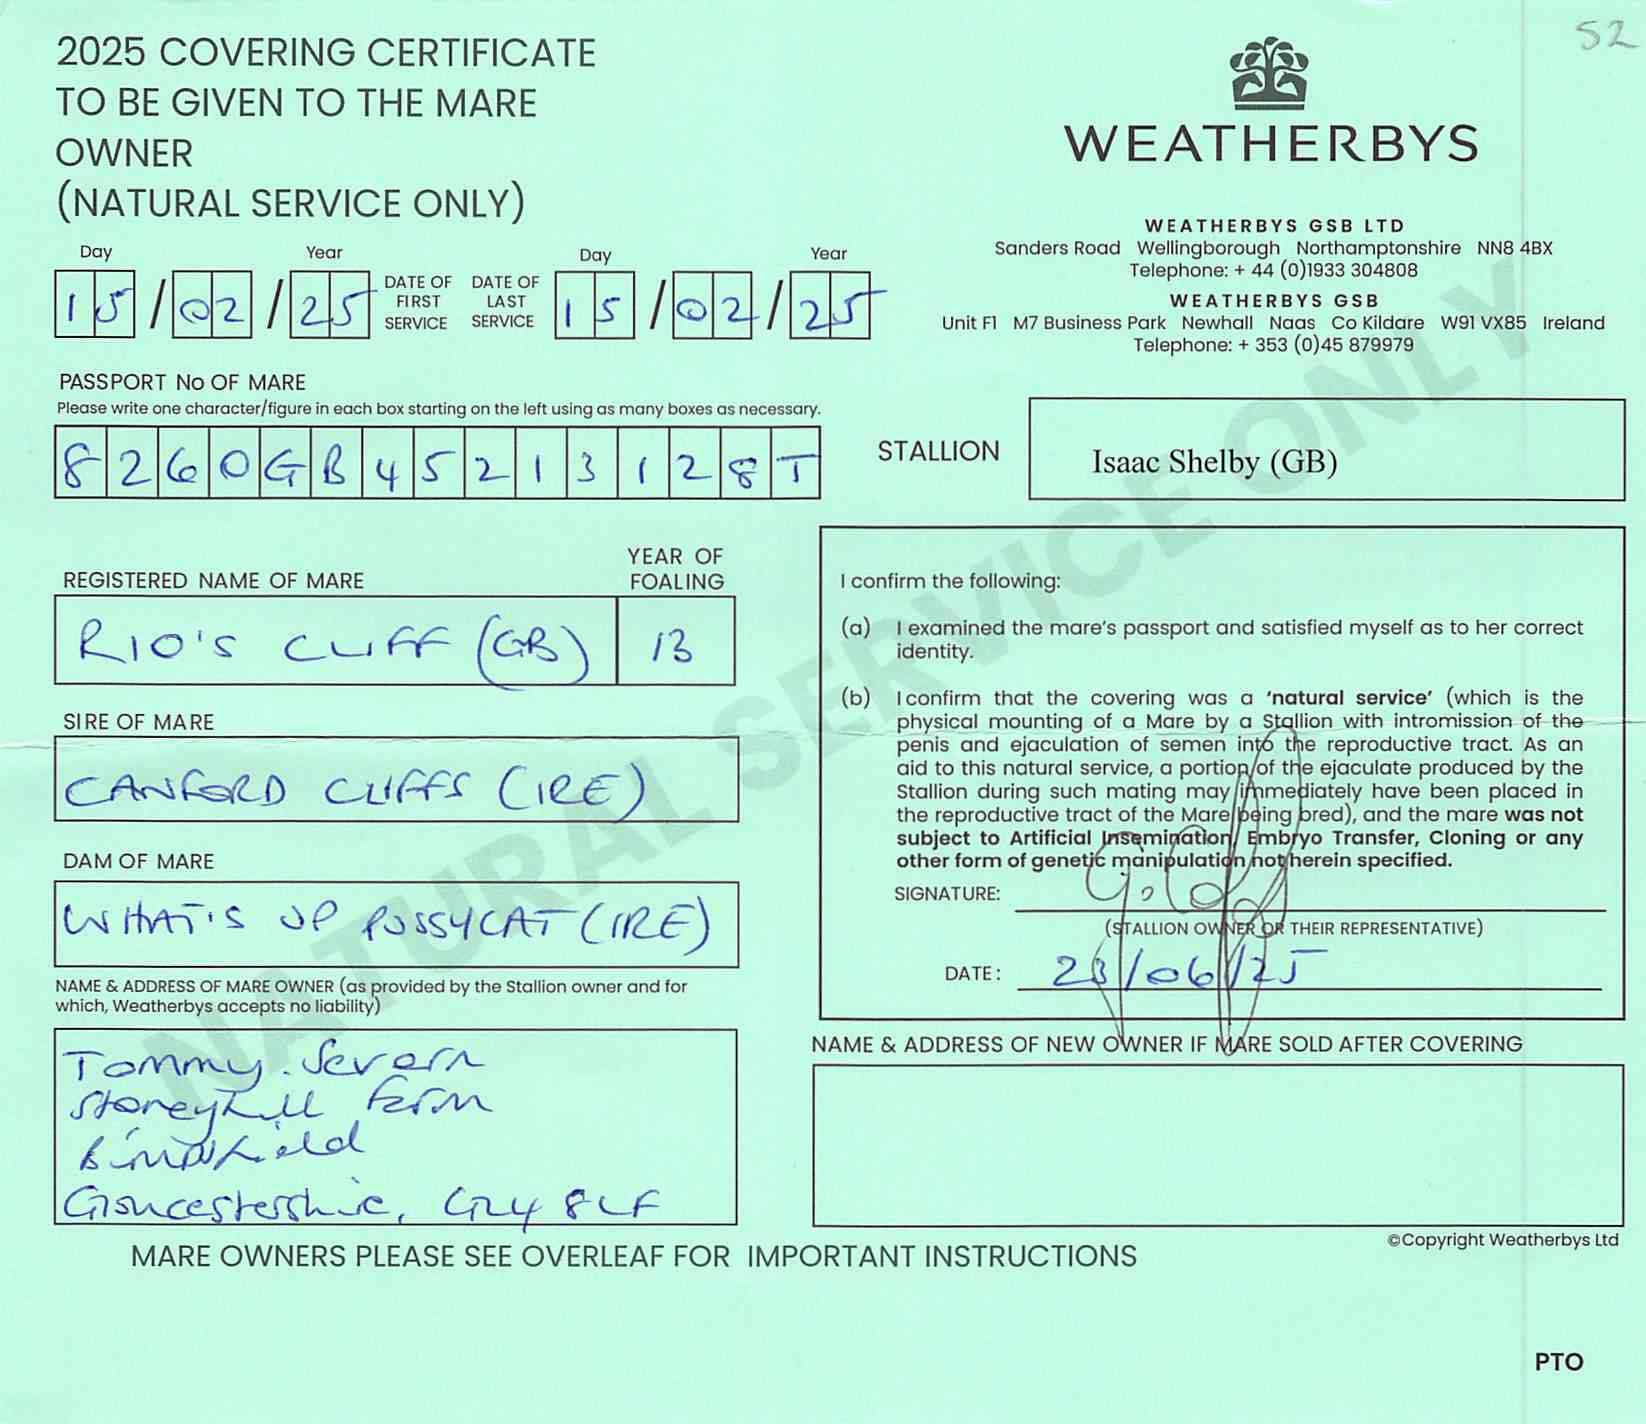 52
2025 COVERING CERTIFICATE
TO BE GIVEN TO THE MARE
OWNER
(NATURAL SERVICE ONLY)
WEATHERBYS
WEATHERBYS GSB LTD
Sanders Road Wellingborough Northamptonshire NN8 4BX
Telephone: + 44 (0)1933 304808
WEATHERBYS GSB
Unit F1 M7 Business Park Newhall Naas Co Kildare W91 VX85 Ireland
Telephone: + 353 (0)45 879979
Day Year
15/02/25
DATE OF
FIRST
SERVICE
DATE OF
LAST
SERVICE
Day Year
15/02/25
PASSPORT No OF MARE
Please write one character/figure in each box starting on the left using as many boxes as necessary.
8260GB45213128T
STALLION
Isaac Shelby (GB)
REGISTERED NAME OF MARE
YEAR OF
FOALING
RIO'S CLIFF (GB) 13
SIRE OF MARE
CANFORD CLIFFS (IRE)
DAM OF MARE
WHAT'S UP PUSSYCAT (IRE)
NAME & ADDRESS OF MARE OWNER (as provided by the Stallion owner and for
which, Weatherbys accepts no liability)
Tommy. Severn
Stoneyhill Farm
Gloucestershire, GL4 8LF
I confirm the following:
(a) I examined the mare's passport and satisfied myself as to her correct
identity.
(b) I confirm that the covering was a 'natural service' (which is the
physical mounting of a Mare by a Stallion with intromission of the
penis and ejaculation of semen into the reproductive tract. As an
aid to this natural service, a portion of the ejaculate produced by the
Stallion during such mating may immediately have been placed in
the reproductive tract of the Mare being bred), and the mare was not
subject to Artificial Insemination, Embryo Transfer, Cloning or any
other form of genetic manipulation not herein specified.
SIGNATURE:
(STALLION OWNER OR THEIR REPRESENTATIVE)
DATE: 23/06/25
NAME & ADDRESS OF NEW OWNER IF MARE SOLD AFTER COVERING
©Copyright Weatherbys Ltd
MARE OWNERS PLEASE SEE OVERLEAF FOR IMPORTANT INSTRUCTIONS
PTO
NATURAL SERVICE ONLY